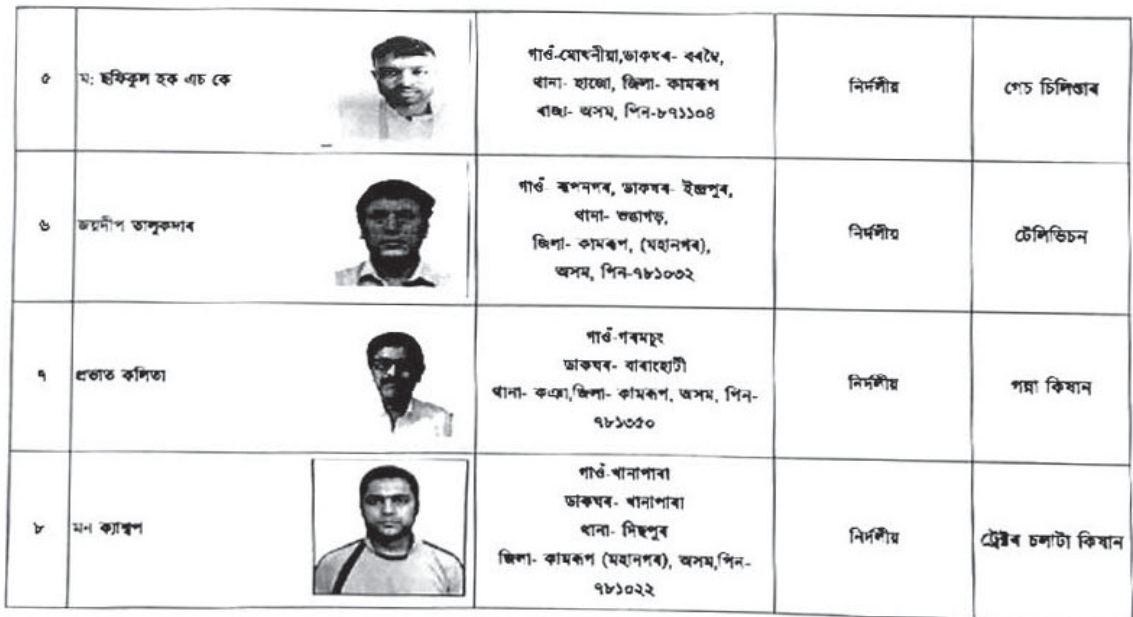 ৫
ম: ছফিকুল হক এচ কে
গাওঁ-মোখনীয়া,ডাকঘৰ- বৰম্বৈ,
থানা- হাজো, জিলা- কামৰূপ
ৰাজ্য- অসম, পিন-৮৭১১০৪
নিৰ্দলীয়
গেচ চিলিণ্ডাৰ
৬
জয়দীপ তালুকদাৰ
গাওঁ- ৰূপনগৰ, ডাকঘৰ- ইন্দ্ৰপুৰ,
থানা- ভঙাগড়,
জিলা- কামৰূপ, (মহানগৰ),
অসম, পিন-৭৮১০৩২
নিৰ্দলীয়
টেলিভিচন
৭
প্ৰভাত কলিতা
গাওঁ-গৰমচুং
ডাকঘৰ- বাৰাংহাটী
থানা- জিলা- কামৰূপ, অসম, পিন-
৭৮১৩৫০
নিৰ্দলীয়
গন্না কিষান
৮
মন ক্যাশ্বপ
গাওঁ-খানাপাৰা
ডাকঘৰ- খানাপাৰা
থানা- দিছপুৰ
জিলা- কামৰূপ (মহানগৰ), অসম,পিন-
৭৮১০২২
নিৰ্দলীয়
ট্ৰেক্টৰ চলাটা কিষান